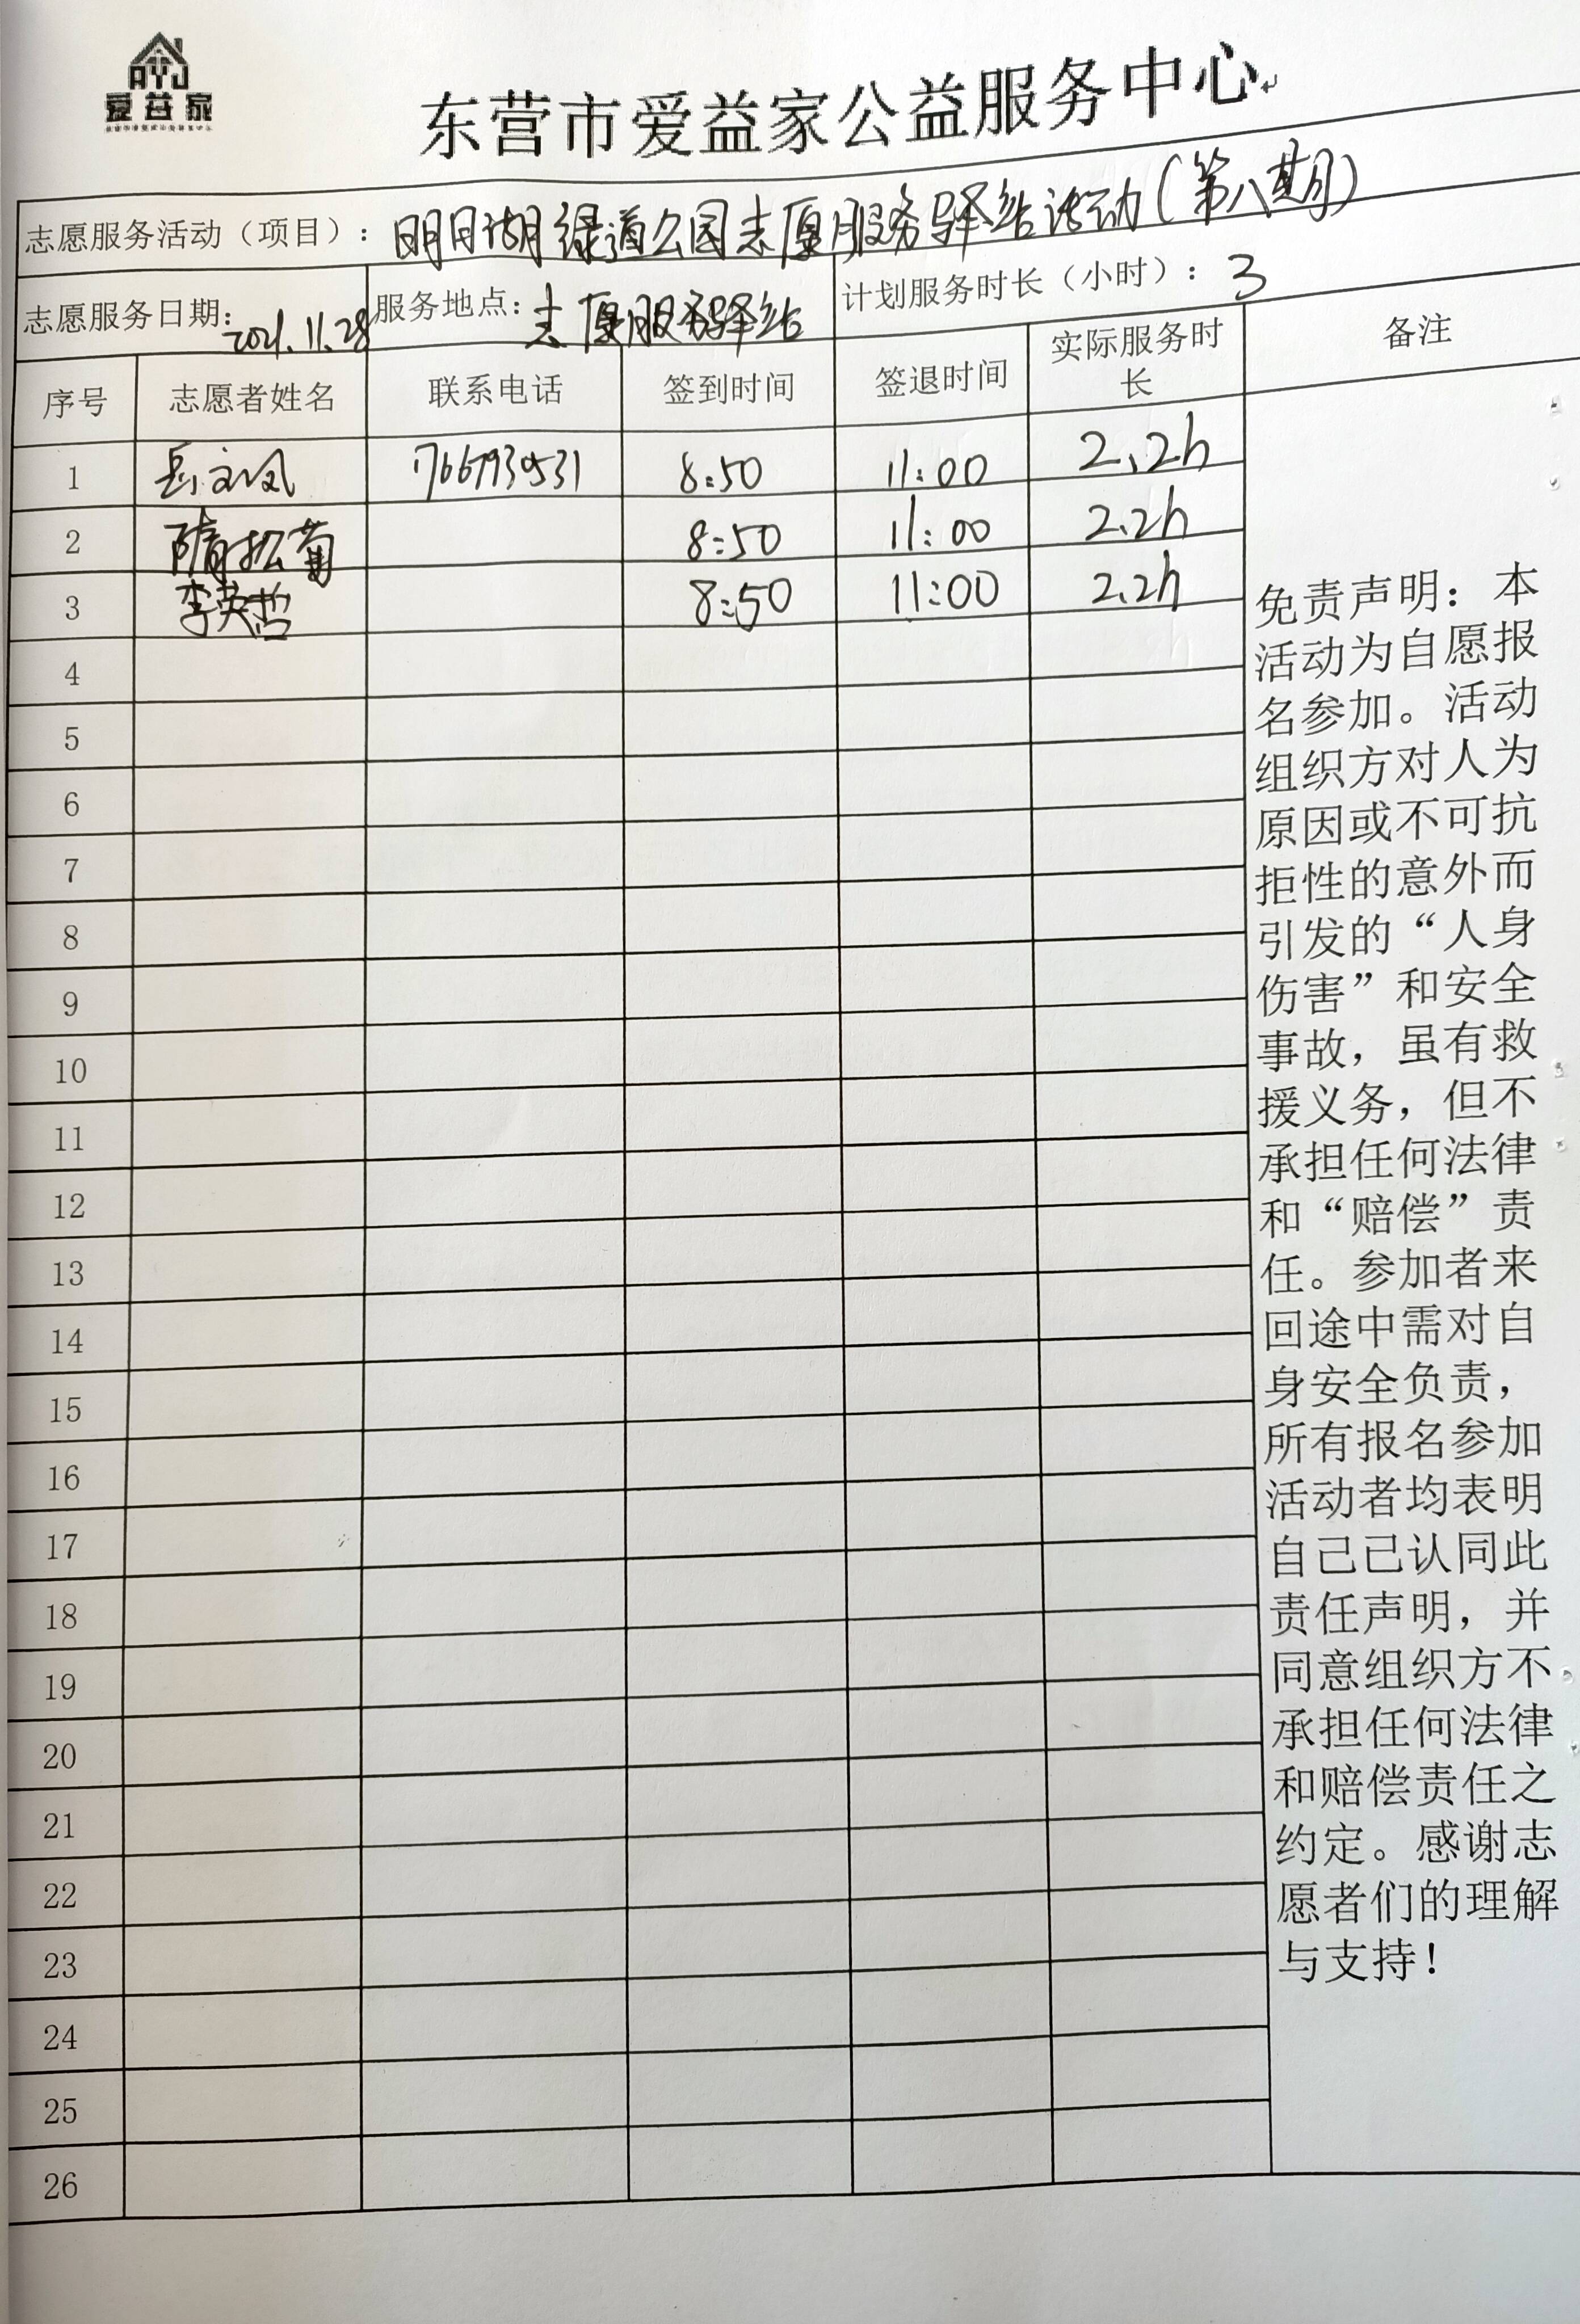 AYJ
爱益家
东营市爱益家公益服务中心
志愿服务活动（项目）：明月湖绿道公园志愿服务驿站活动（第八期）
志愿服务日期：2021.11.28 服务地点：志愿服务驿站 计划服务时长（小时）：3
序号 志愿者姓名 联系电话 签到时间 签退时间 实际服务时长 备注
1 岳文凤 8:50 11:00 2.2h
2 隋松菊 8:50 11:00 2.2h
3 李英哲 8:50 11:00 2.2h
4
5
6
7
8
9
10
11
12
13
14
15
16
17
18
19
20
21
22
23
24
25
26
免责声明：本
活动为自愿报
名参加。活动
组织方对人为
原因或不可抗
拒性的意外而
引发的“人身
伤害”和安全
事故，虽有救
援义务，但不
承担任何法律
和“赔偿”责
任。参加者来
回途中需对自
身安全负责，
所有报名参加
活动者均表明
自己已认同此
责任声明，并
同意组织方不
承担任何法律
和赔偿责任之
约定。感谢志
愿者们的理解
与支持！